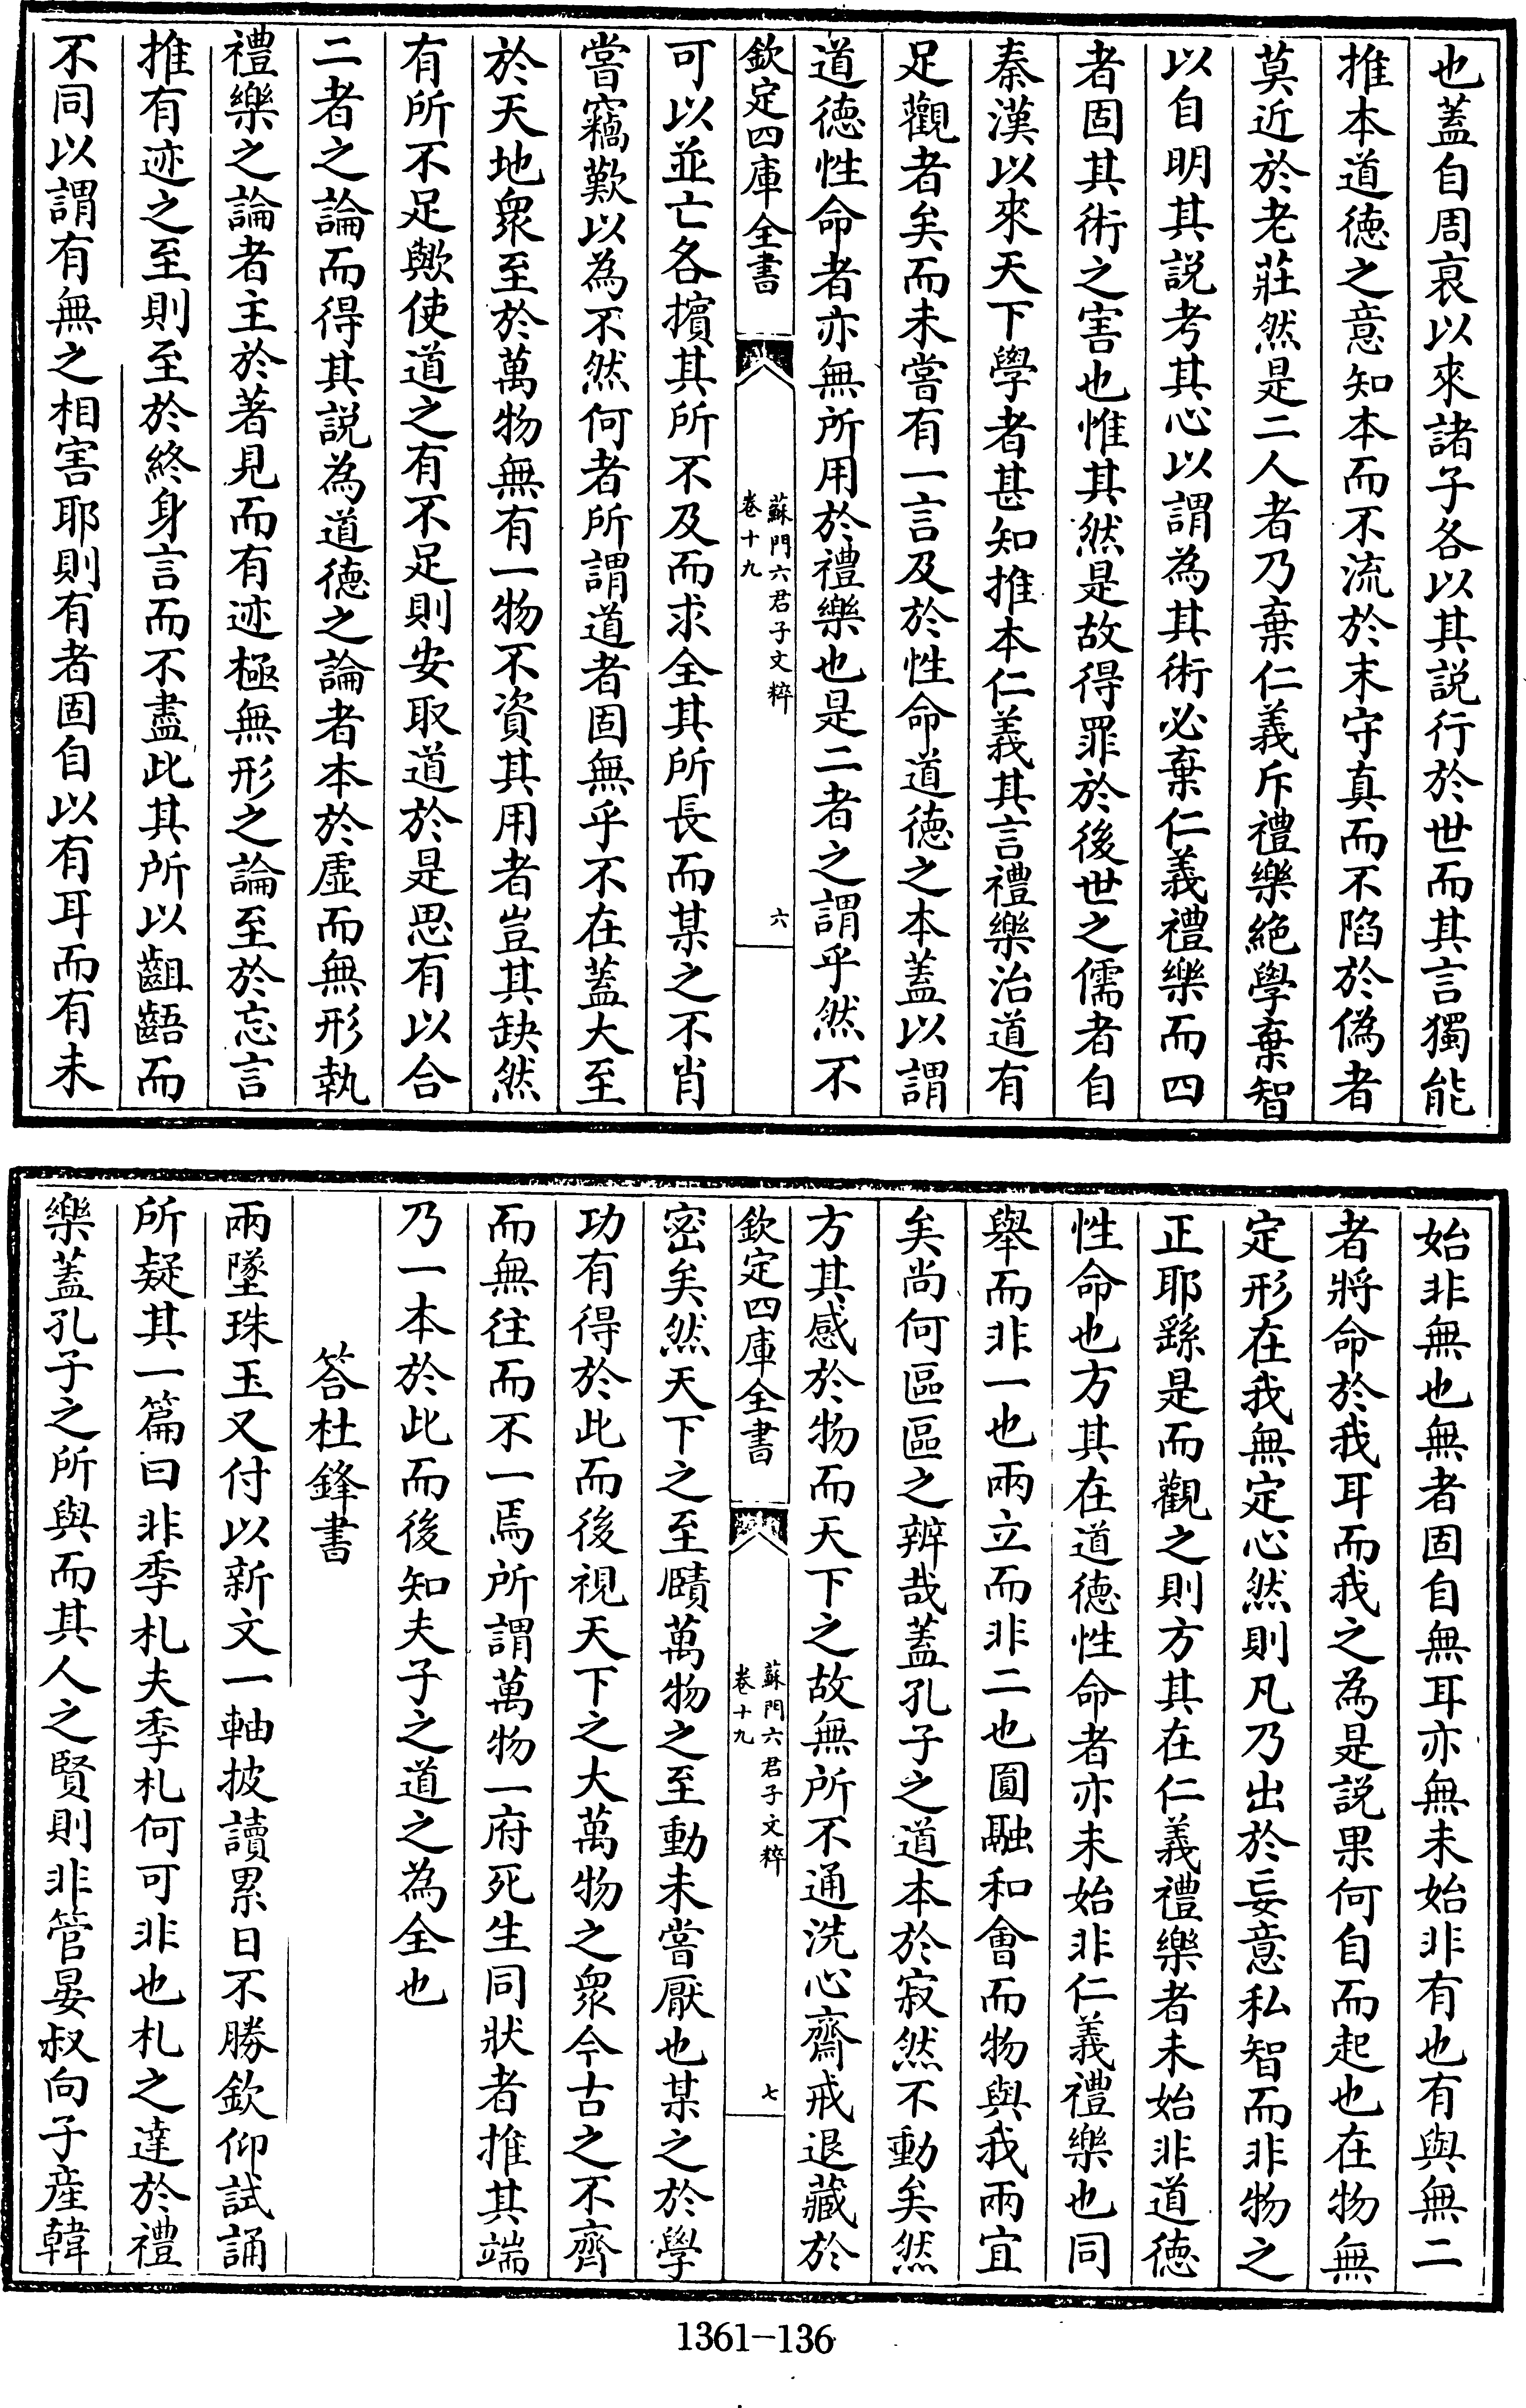 也蓋自周衰以來諸子各以其説行於世而其言獨能
推本道徳之意知本而不流於末守真而不陷於偽者
莫近於老莊然是二人者乃棄仁義斥禮樂絶學棄智
以自明其説考其心以謂為其術必棄仁義禮樂而四
者固其術之害也惟其然是故得罪於後世之儒者自
秦漢以來天下學者甚知推本仁義其言禮樂治道有
足觀者矣而未嘗有一言及於性命道徳之本蓋以謂
道徳性命者亦無所用於禮樂也是二者之謂乎然不
欽定四庫全書
蘇門六君子文粹
卷十九
六
可以並亡各擯其所不及而求全其所長而某之不肖
嘗竊歎以為不然何者所謂道者固無乎不在蓋大至
於天地衆至於萬物無有一物不資其用者豈其缺然
有所不足歟使道之有不足則安取道於是思有以合
二者之論而得其説為道徳之論者本於虛而無形執
禮樂之論者主於著見而有迹極無形之論至於忘言
推有迹之至則至於終身言而不盡此其所以齟齬而
不同以謂有無之相害耶則有者固自以有耳而有未
始非無也無者固自無耳亦無未始非有也有與無二
者將命於我耳而我之為是説果何自而起也在物無
定形在我無定心然則凡乃出於妄意私智而非物之
正耶繇是而觀之則方其在仁義禮樂者未始非道徳
性命也方其在道徳性命者亦未始非仁義禮樂也同
舉而非一也兩立而非二也圓融和會而物與我兩宜
矣尚何區區之辨哉蓋孔子之道本於寂然不動矣然
方其感於物而天下之故無所不通洗心齋戒退藏於
欽定四庫全書
蘇門六君子文粹
卷十九
七
密矣然天下之至賾萬物之至動未嘗厭也某之於學
功有得於此而後視天下之大萬物之衆今古之不齊
而無往而不一焉所謂萬物一府死生同狀者推其端
乃一本於此而後知夫子之道之為全也
答杜鋒書
兩墜珠玉又付以新文一軸披讀累日不勝欽仰試誦
所疑其一篇曰非季札夫季札何可非也札之達於禮
樂蓋孔子之所與而其人之賢則非管晏叔向子産韓
1361-136